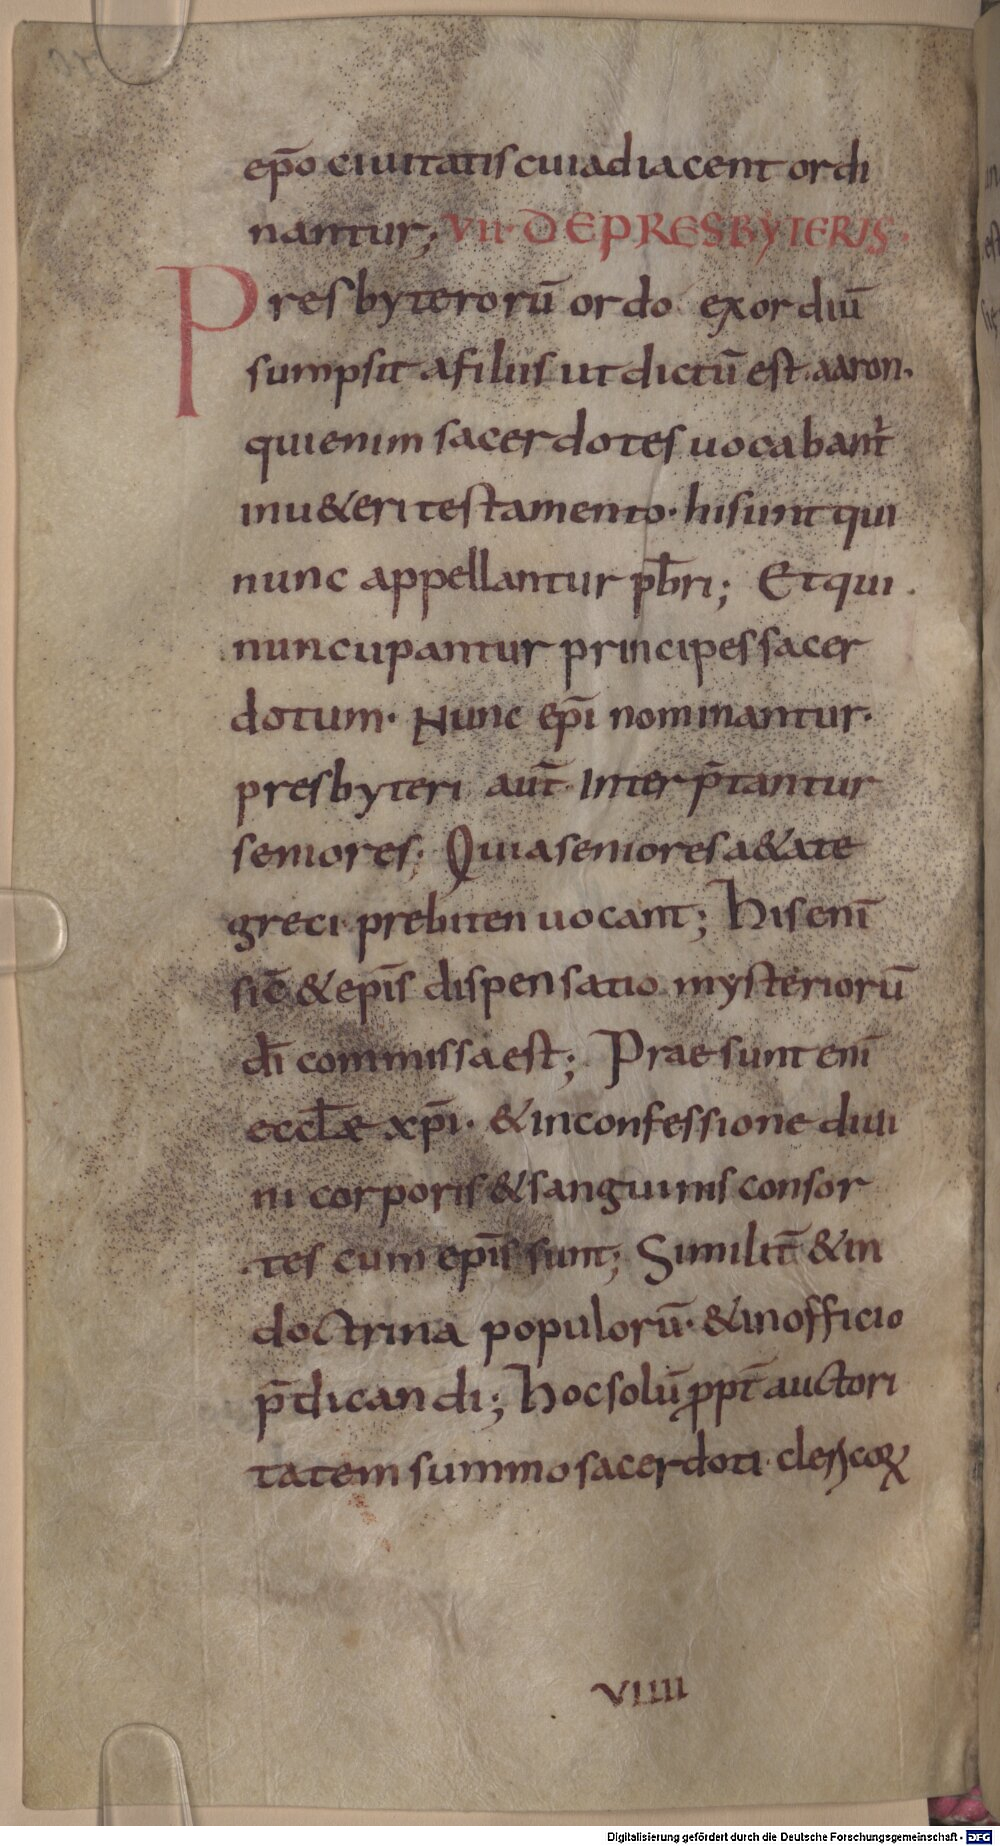 ep̄o ciuitatis cui adiacent ordi
nantur; VII· DE PRESBYTERIS·
Presbyterorū ordo exordiū
sumpsit a filiis ut dictū est· aaron·
qui enim sacerdotes uocabant᷑
in u&eri testamento· hi sunt qui
nunc appellantur pb̄ri; Et qui
nuncupantur principes sacer
dotum· Nunc ep̄i nominantur·
presbyteri aut̄ Inter p̄tantur
seniores; Quia seniores a&ate
greci prebiten uocant; His enī
sic̄ & ep̄is dispensatio mysteriorū
dī commissa est; Prae sunt enī
eccl̄ae xp̄i· & in confessione diui
ni corporis & sanguinis consor
tes cum ep̄is sunt; Similit̄ & in
doctrina populorū· & in officio
p̄dicandi; hoc solū ꝓpt̄ auctori
tatem summo sacerdoti· clericoꝝ
VIIII
Digitalisierung gefördert durch die Deutsche Forschungsgemeinschaft - DFG